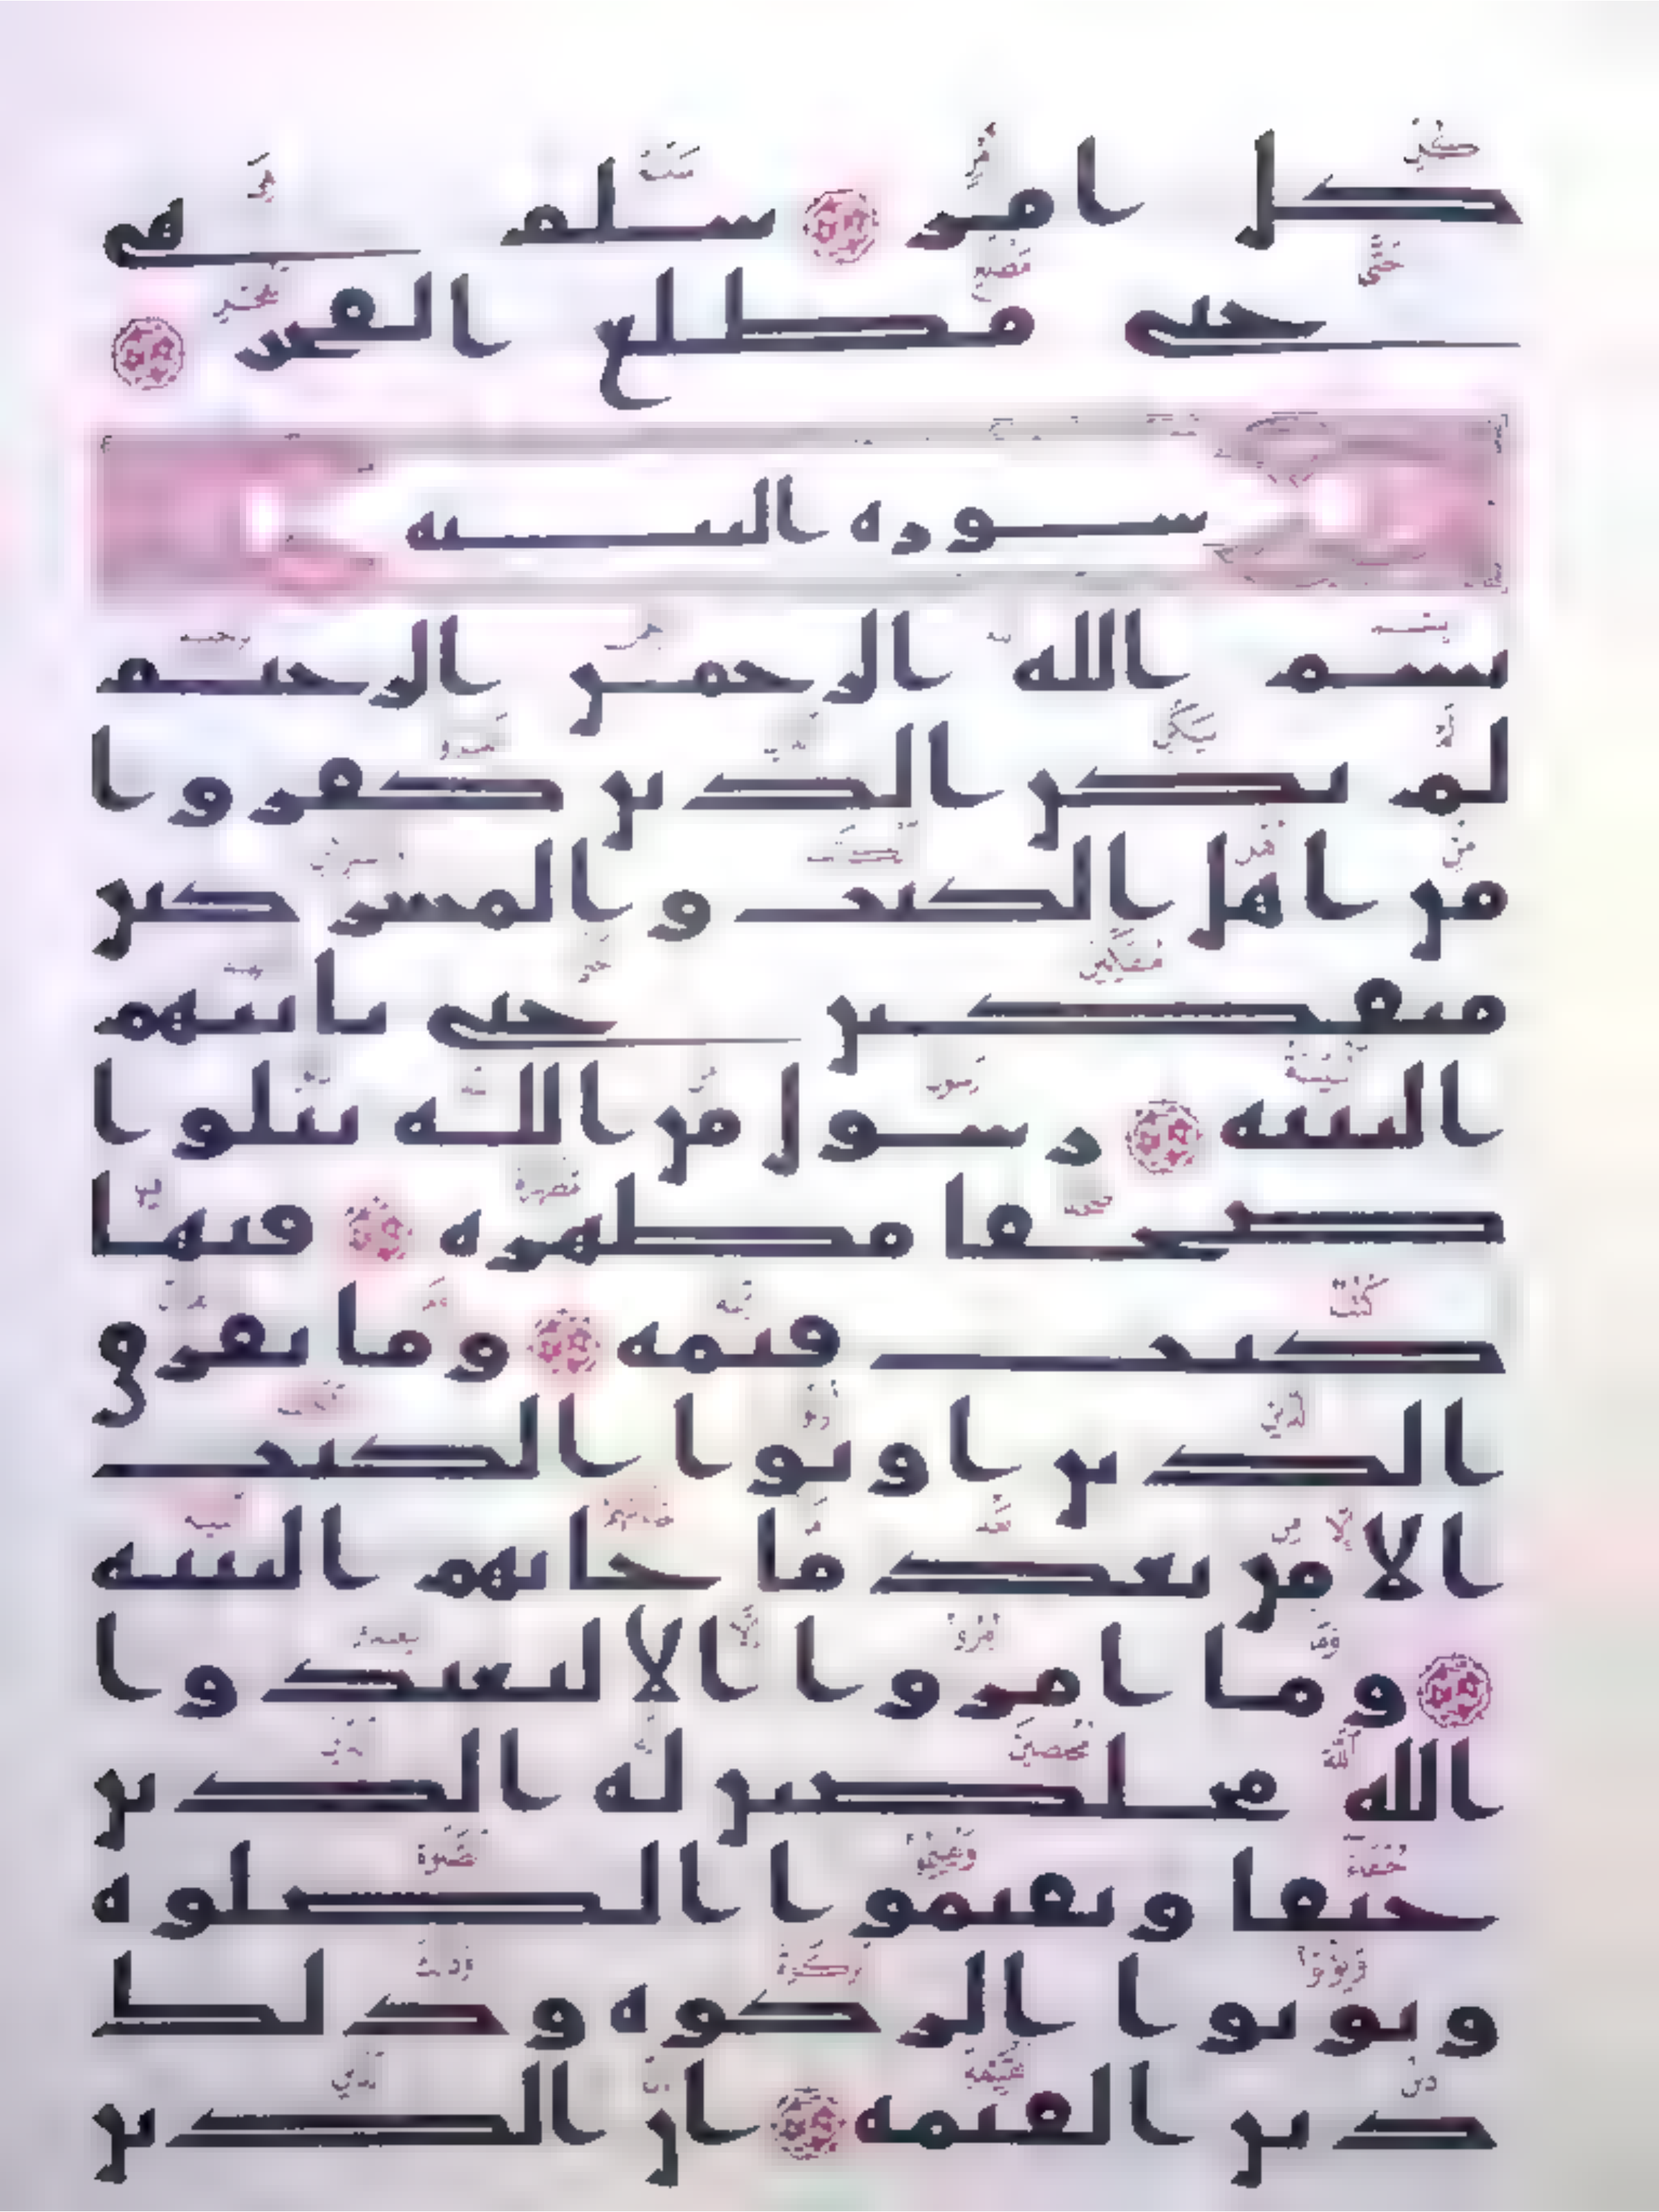 كل امر سلم هى
حتى مطلع الفجر
سورة البينة
بسم الله الرحمن الرحيم
لم يكن الذين كفروا
من اهل الكتب والمشركين
منفكين حتى تاتيهم
البينة رسول من الله يتلوا
صحفا مطهرة فيها
كتب قيمة وما تفرق
الذين اوتوا الكتب
الا من بعد ما جاتهم البينة
وما امروا الا ليعبدوا
الله مخلصين له الدين
حنفا ويقيموا الصلوة
ويوتوا الزكوة وذلك
دين القيمة ان الذين